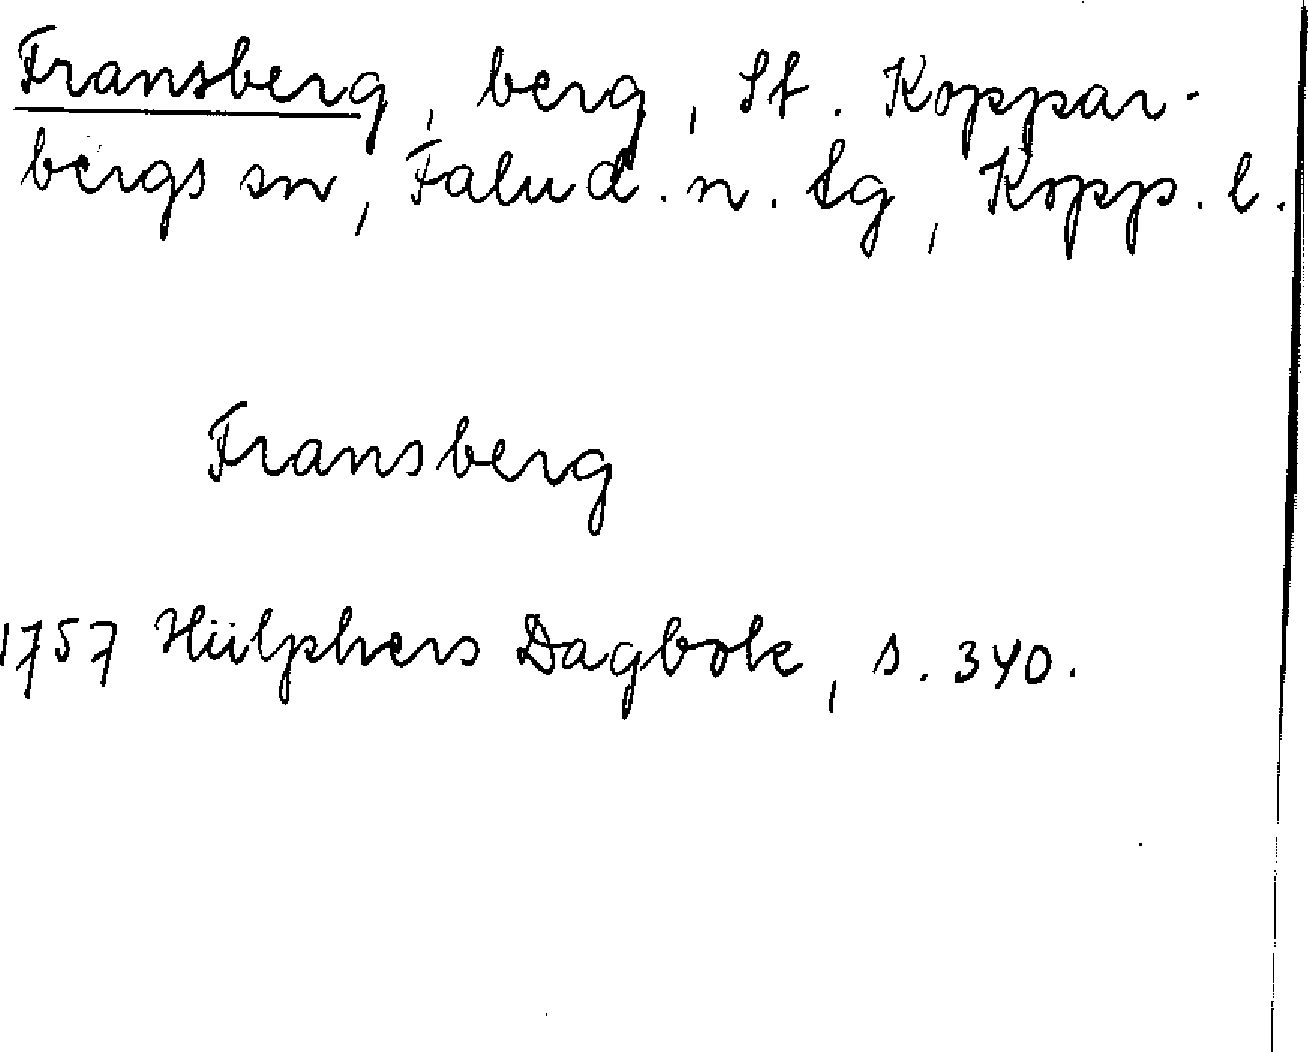 Fransberg, berg, St. Koppar-
bergs sn, Falu d. n. tg, Kopp. l.
Fransberg
1757 Hülphers Dagbok, s. 340.